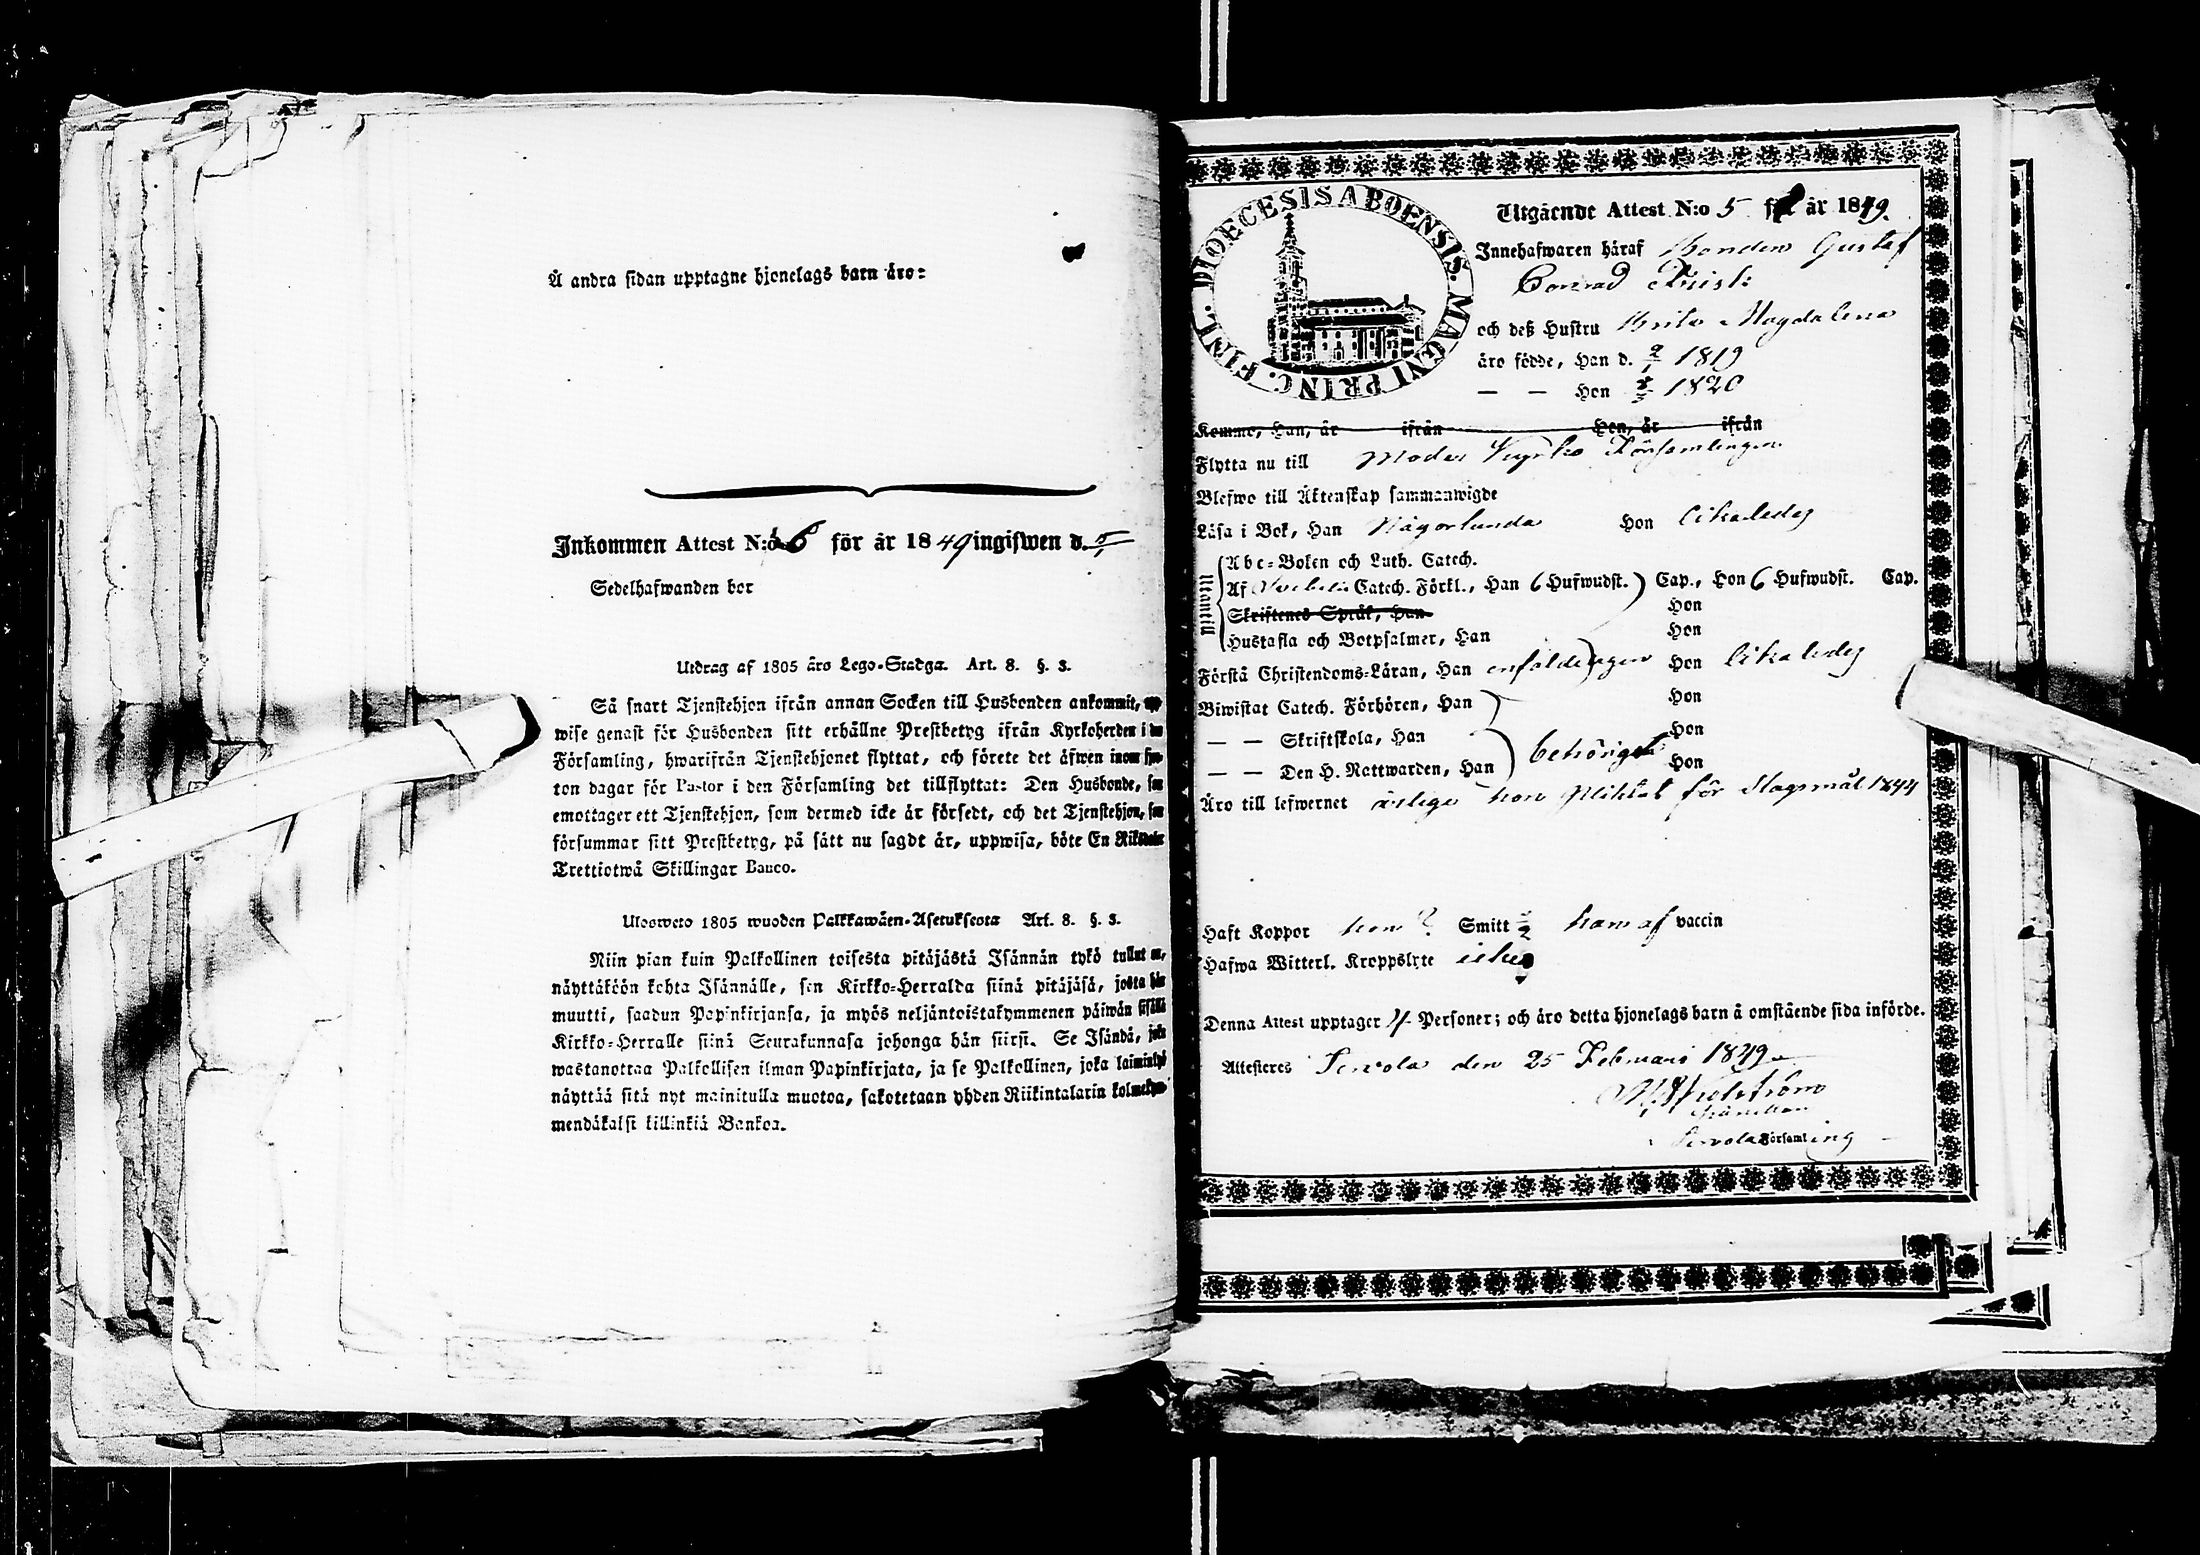 Å andra sidan upptagne hjonelags barn äro:
Inkommen Attest N:o 6 för år 1849 ingifwen d.
Sedelhafwanden bor
Utdrag af 1805 års Lego-Stadga. Art. 8. §. 3.
Så snart Tjenstehjon ifrån annan Socken till Husbonden ankommit,
wise genast för Husbonden sitt erhållne Prestbetyg ifrån Kyrkoherden i
Församling, hwarifrån Tjenstehjonet flyttat, och förete det äfwen inom
ton dagar för Pastor i den Församling det tillflyttat: Den Husbonde,
emottager ett Tjenstehjon, som dermed icke är försedt, och det Tjenstehjon,
försummar sitt Prestbetyg, på sätt nu sagdt är, uppwisa, böte En
Trettiotwå Skillingar Banco.
Ulosweto 1805 wuoden Palkkawäen-Asetuksesta Art. 8. §. 3.
Niin pian kuin Palkollinen toisesta pitäjästä Isännän tykö tullut on,
näyttäköön kohta Isännälle, sen Kirkko-Herralda siinä pitäjäsä, josta hän
muutti, saadun Papinkirjansa, ja myös neljäntoistakymmenen päiwän sisällä
Kirkko-Herralle siinä Seurakunnasa johonga hän siirsi. Se Isändä, joka
wastanottaa Palkollisen ilman Papinkirjata, ja se Palkollinen, joka
näyttää sitä nyt mainitulla muotoa, sakotetaan yhden Riikintalarin
mendäkaksi killinkiä Bankoa.
DIOECESIS ABOENSIS. MAGNI PRINC. FINL.
Utgående Attest N:o 5 för år 1849.
Innehafwaren häraf Bonden Gustaf
Conrad
och deß Hustru Brita Magdalena
äro födde, Han d. 1819
— — Hon 1820
Komne, Han, år ifrån Hon, år ifrån
Flytta nu till Moder Kyrko Församlingen
Blefwo till Äktenskap sammanwigde
Läsa i Bok, Han Någorlunda Hon likaledes
Utantill
Abc-Boken och Luth. Catech.
Af Catech. Förkl., Han 6 Hufwudst. Cap., Hon 6 Hufwudst. Cap.
Skriftenes Språk, Han Hon
Hustafla och Botpsalmer, Han Hon
Förstå Christendoms-Läran, Han enfaldeligen Hon likaledes
Biwistat Catech. Förhören, Han Hon
— — Skriftskola, Han Hon
— — Den H. Nattwarden, Han Hon
behörigt
Äro till lefwernet ärlige hon Pliktat för Slagsmål 1844
Haft Koppor hon Smitt han af vaccin
Hafwa Witterl. Kroppslyte icke
Denna Attest upptager 4 Personer; och äro detta hjonelags barn å omstående sida införde.
Attesteres Serwola den 25 Februari 1849
Serwola Församling